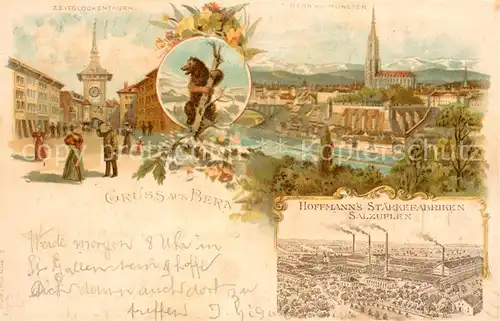 ZEITGLOCKENTHURM.
BERN MIT MÜNSTER.
GRUSS AUS BERN
HOFFMANN'S STÄRKEFABRIKEN
SALZUFLEN
Werde morgen 8 Uhr in
St Gallen sein & hoffe
Dich dann auch dort zu
treffen J.